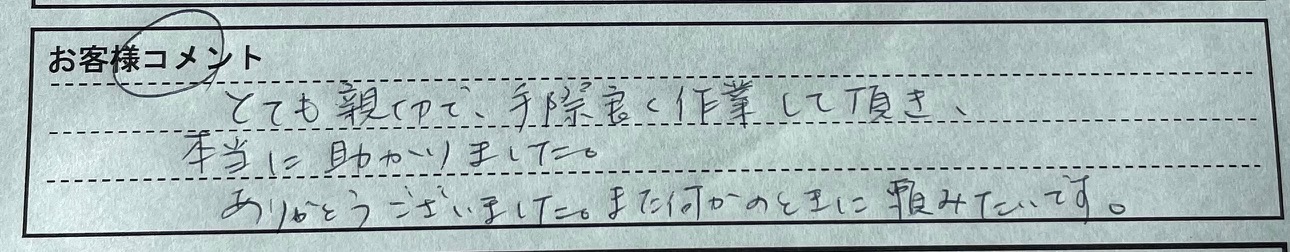 お客様コメント
とても親切で、手際良く作業して頂き、
本当に助かりました。
ありがとうございました。また何かのときに頼みたいです。